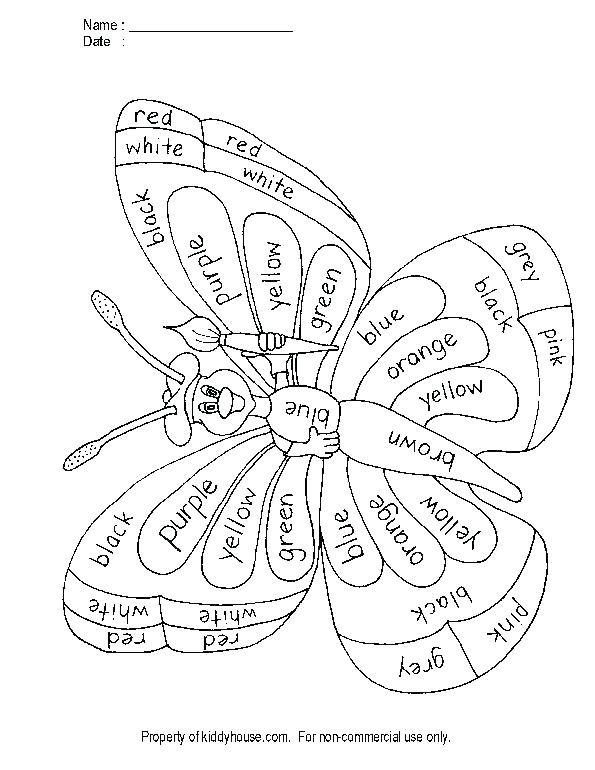 Name : ____________________
Date :
red
red
white
white
black
purple
yellow
green
grey
black
pink
blue
orange
yellow
blue
brown
black
purple
yellow
green
blue
orange
yellow
white
white
red
red
black
pink
grey
Property of kiddyhouse.com. For non-commercial use only.